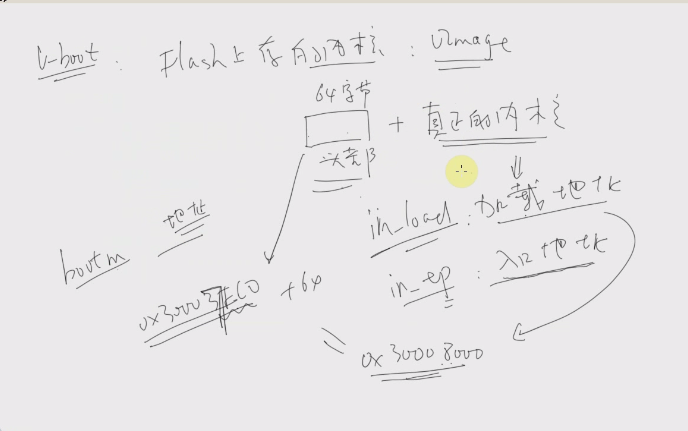 U-boot : Flash上存的内核 : uImage
64字节
头部 + 真正的内核
in_load : 加载地址
in_ep : 入口地址
bootm 地址
+64
= 0x30008000